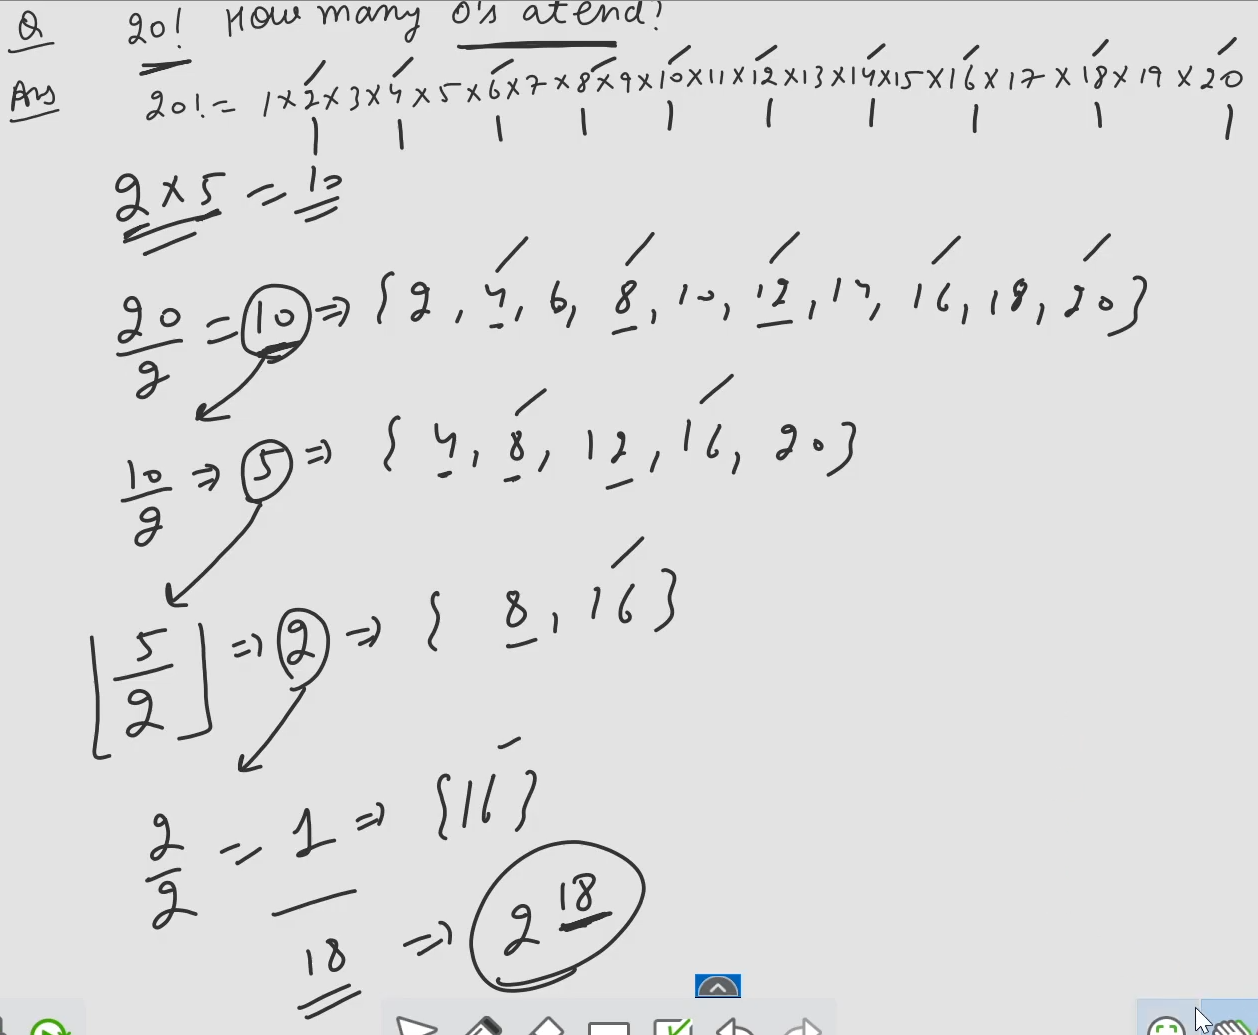 Q 20! How many 0's at end?
Ans 20! = 1 × 2 × 3 × 4 × 5 × 6 × 7 × 8 × 9 × 10 × 11 × 12 × 13 × 14 × 15 × 16 × 17 × 18 × 19 × 20
2 × 5 = 10
20/2 = 10 ⇒ {2, 4, 6, 8, 10, 12, 14, 16, 18, 20}
10/2 ⇒ 5 ⇒ {4, 8, 12, 16, 20}
[5/2] ⇒ 2 ⇒ {8, 16}
2/2 = 1 ⇒ {16}
18 ⇒ 2^18